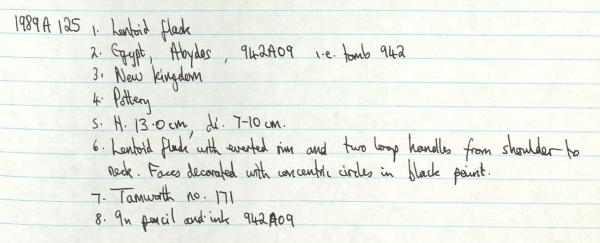 1989A 125 1. Lentoid flask
2. Egypt, Abydos, 942A09 i.e. tomb 942
3. New Kingdom
4. Pottery
5. H. 13.0cm, di. 7-10 cm.
6. Lentoid flask with everted rim and two loop handles from shoulder to
neck. Faces decorated with concentric circles in black paint.
7. Tamworth no. 171
8. In pencil and ink 942A09